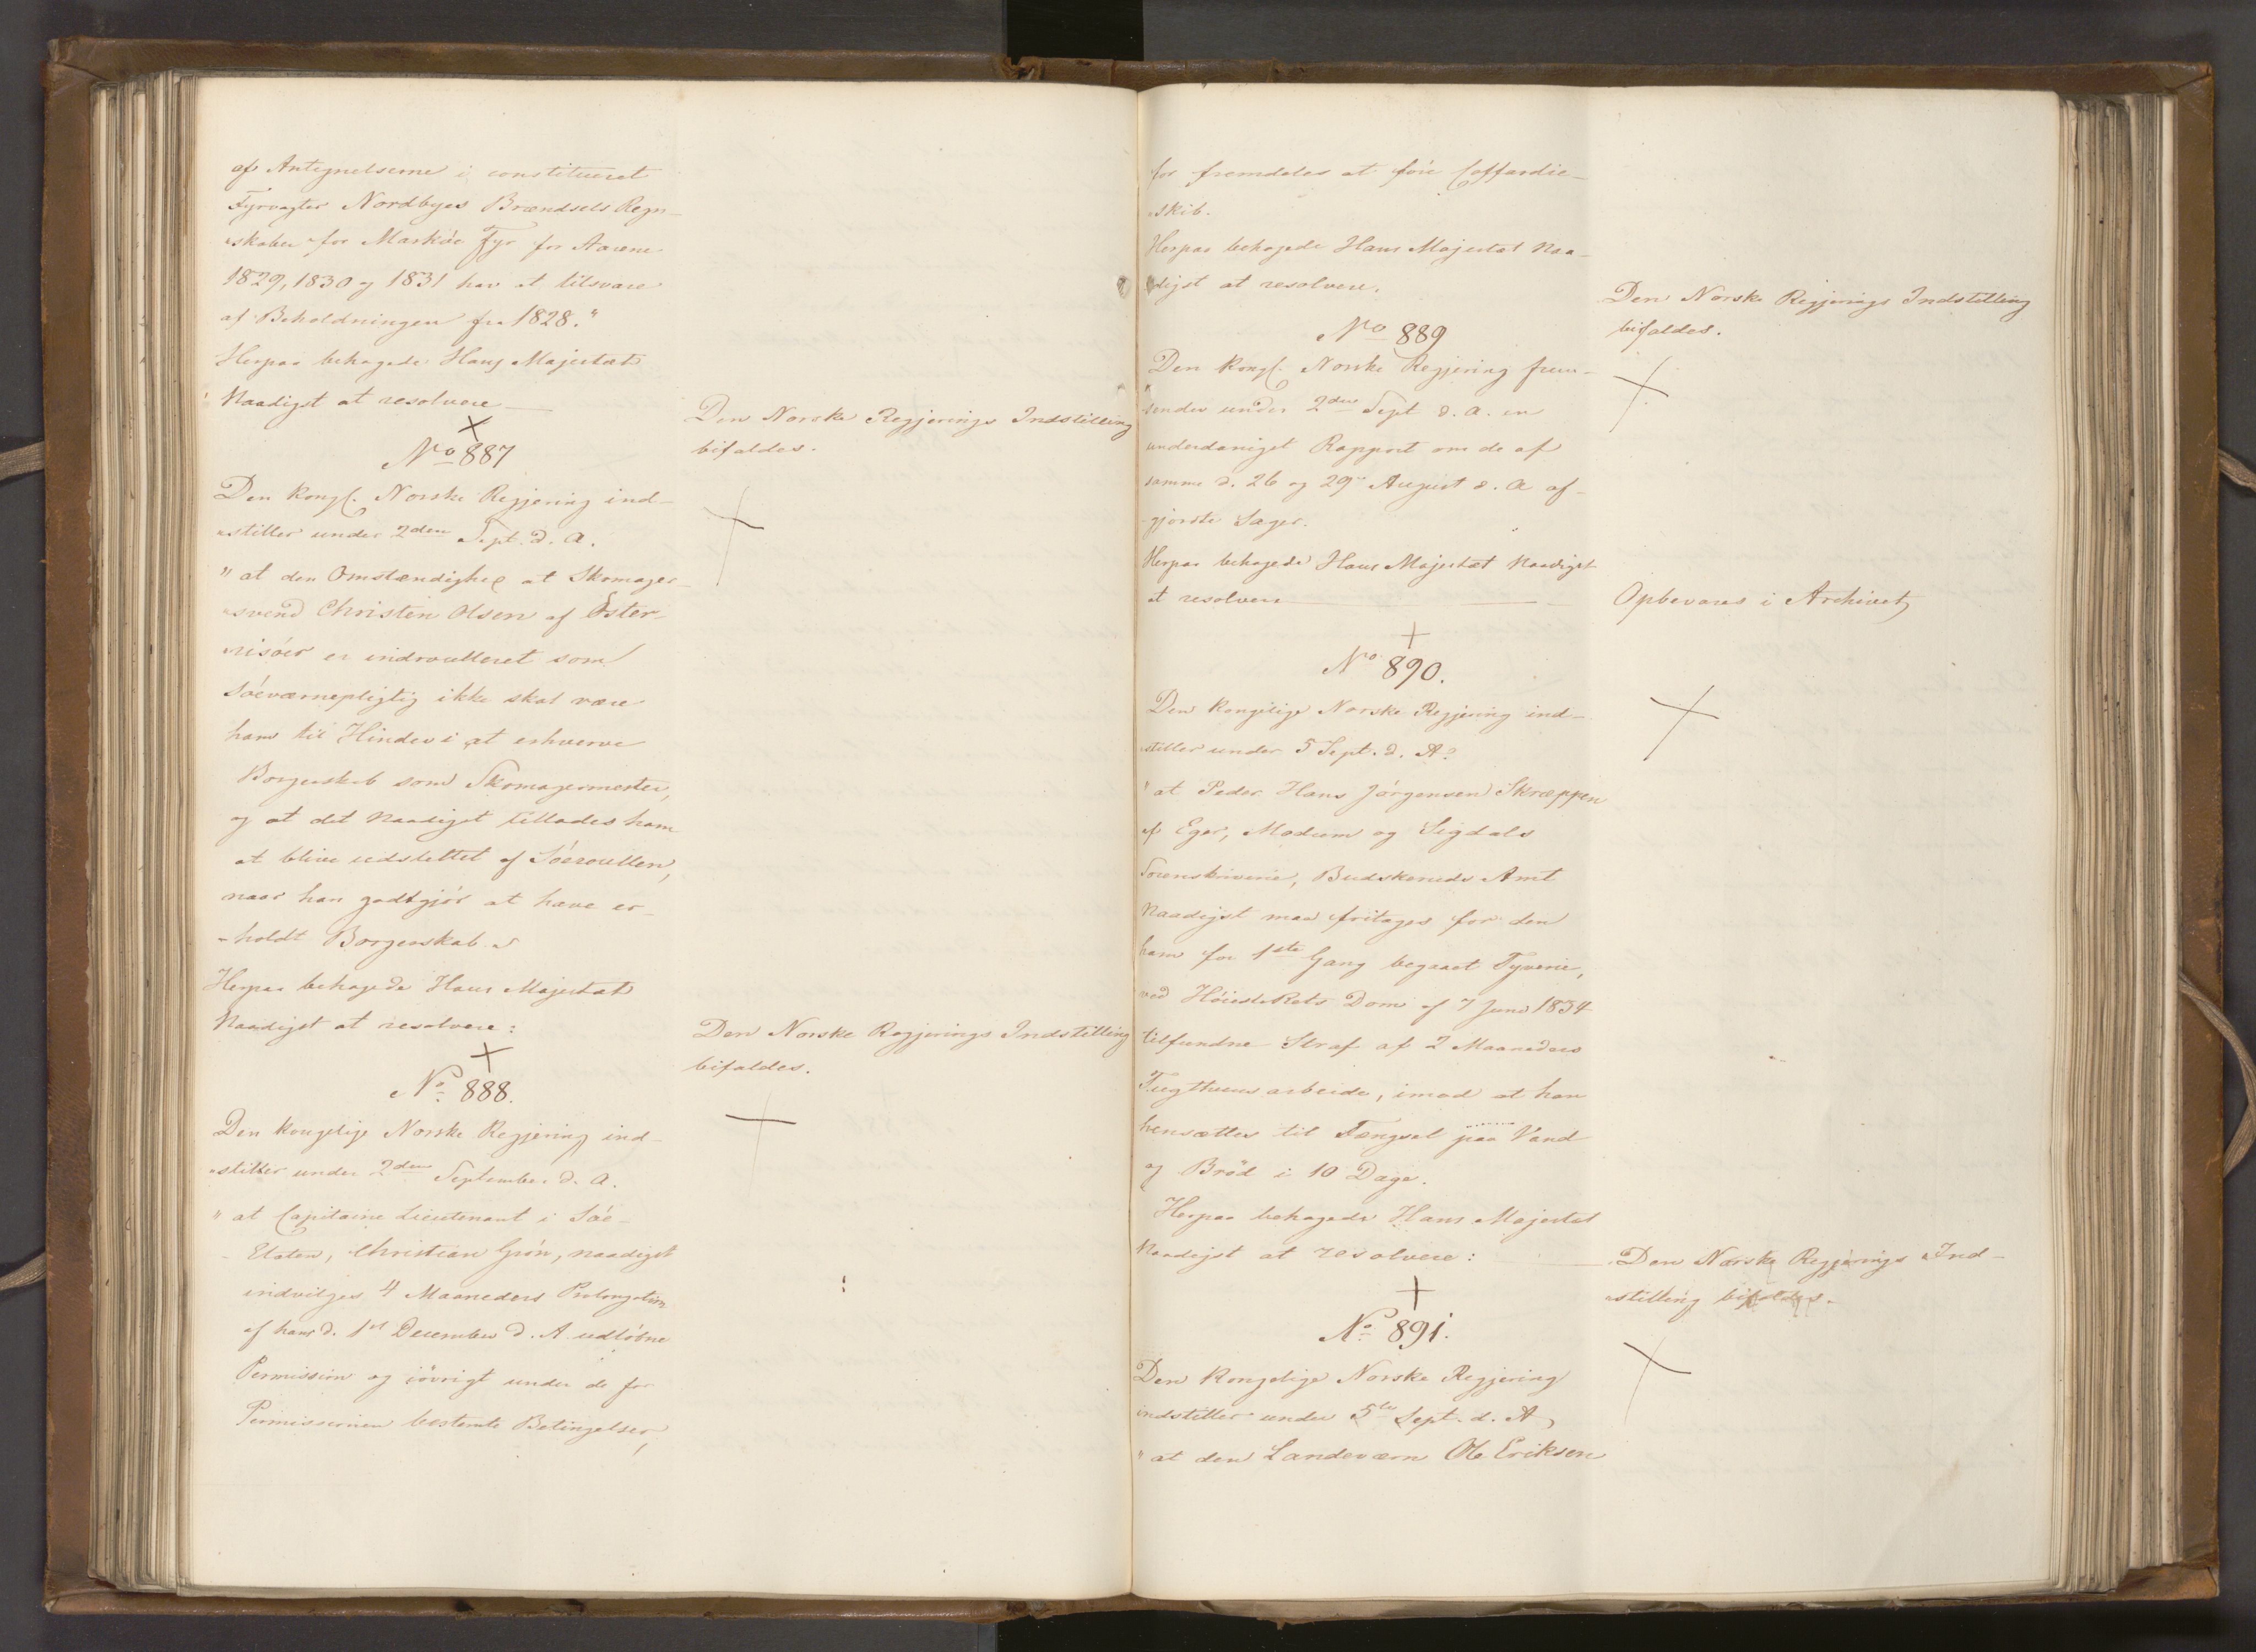 af Antegnelserne i constitueret
Fyrvogter Nordbyes Brændsels Regn-
-skaber for Marköe Fyr for Aarene
1829, 1830 og 1831 har at tilsvare
af Beholdningen fra 1828."
Herpaa behagede Hans Majestæt
Naadigst at resolvere
Den Norske Regjerings Indstilling
bifaldes.
No 887
Den Kongl. Norske Regjering ind-
-stiller under 2den Sept. d. A.
" at den Omstændighed at Skomager-
-svend Christen Olsen af Öster-
-risöer er indroulleret som
Söeværnepligtig ikke skal være
ham til Hinder i at erhverve
Borgerskab som Skomagermester,
og at det Naadigst tillades ham
at blive udslettet af Söeroullen,
naar han godtgjör at have er-
-holdt Borgerskab."
Herpaa behagede Hans Majestæt
Naadigst at resolvere:
Den Norske Regjerings Indstilling
bifaldes.
No 888.
Den kongelige Norske Regjering ind-
-stiller under 2den September d. A.
" at Capitaine Lieutenant i Söe-
- Etaten, Christian Grön, naadigst
indvilges 4 Maaneders Prolongation
af hans d. 1st December d. A. udlöbne
Permission og iövrigt under de for
Permissionen bestemte Betingelser,
for fremdeles at före Coffardie-
-skib.
Herpaa behagede Hans Majestæt Naa-
digst at resolvere.
Den Norske Regjerings Indstilling
bifaldes.
No 889
Den Kongl. Norske Regjering frem-
sender under 2den Sept d. A. en
underdanigst Rapport om de af
samme d. 26 og 29 August d. A af-
gjorte Sager.
Herpaa behagede Hans Majestæt Naadigst
at resolvere
Opbevares i Archivet,
No 890.
Den Kongelige Norske Regjering ind-
-stiller under 5 Sept. d. A:
" at Peder Hans Jörgensen Skræppen
af Eger, Modum og Sigdals
Sorenskriverie, Budskeruds Amt
Naadigst maa fritages for den
ham for 1ste Gang begaaet Tyverie,
ved Höieste Rets Dom af 7 Juni 1834
tilfundne Straf af 2 Maaneders
Tugthuusarbeide, imod at han
hensættes til Fængsel paa Vand
og Bröd i 10 Dage.
Herpaa behagede Hans Majestæt
Naadigst at resolvere:
Den Norske Regjerings Ind-
-stilling bifaldes.
No 891.
Den Kongelige Norske Regjering
indstiller under 5te Sept. d. A,
" at den Landeværn Ole Eriksen